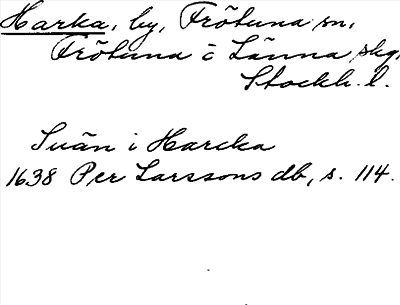 Harka, by, Frötuna sn,
Frötuna o Länna skg,
Stockh. l.
Suän i Harcka
1638 Per Larssons db, s. 114.